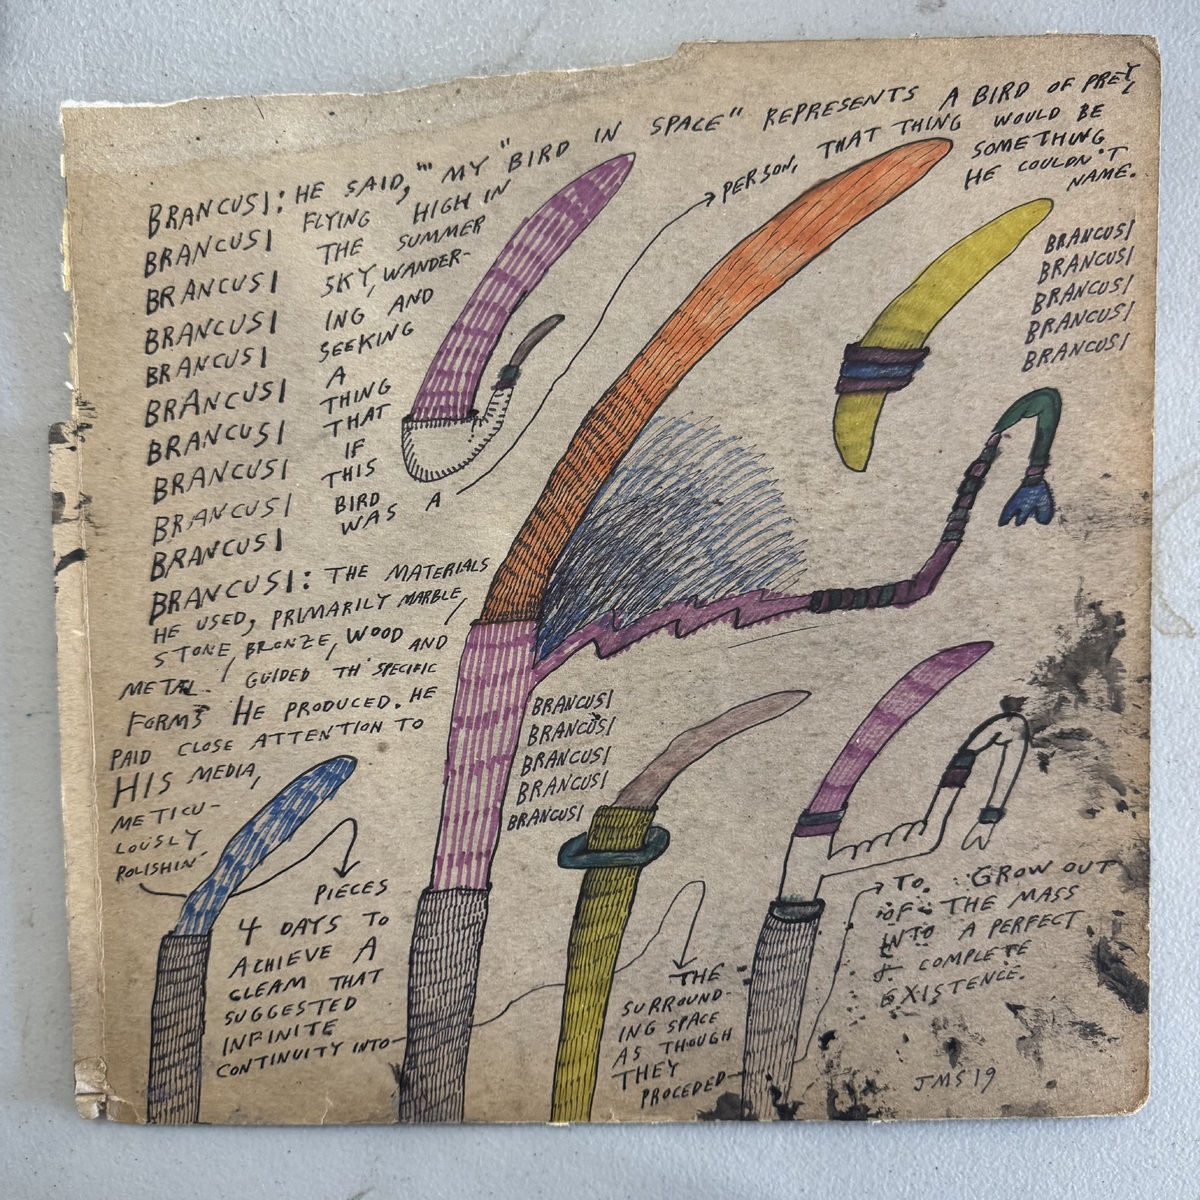 BRANCUSI: HE SAID, "' MY "BIRD IN SPACE" REPRESENTS A BIRD OF PREY,
BRANCUSI FLYING HIGH IN
BRANCUSI THE SUMMER
BRANCUSI SKY, WANDER-
BRANCUSI ING AND
BRANCUSI SEEKING
BRANCUSI A
BRANCUSI THING
BRANCUSI THAT
BRANCUSI IF
THIS
BIRD
WAS A
PERSON, THAT THING WOULD BE
SOMETHING
HE COULDN'T
NAME.
BRANCUSI
BRANCUSI
BRANCUSI
BRANCUSI
BRANCUSI
BRANCUSI: THE MATERIALS
HE USED, PRIMARILY MARBLE,
STONE, BRONZE, WOOD AND
METAL. GUIDED TH' SPECIFIC
FORMS HE PRODUCED. HE
PAID CLOSE ATTENTION TO
HIS MEDIA,
METICU-
LOUSLY
POLISHIN'
PIECES
4 DAYS TO
ACHIEVE A
GLEAM THAT
SUGGESTED
INFINITE
CONTINUITY INTO-
BRANCUSI
BRANCUSI
BRANCUSI
BRANCUSI
BRANCUSI
THE
SURROUND-
ING SPACE
AS THOUGH
THEY
PROCEDED-
TO GROW OUT
OF THE MASS
INTO A PERFECT
& COMPLETE
EXISTENCE.
JMS 19